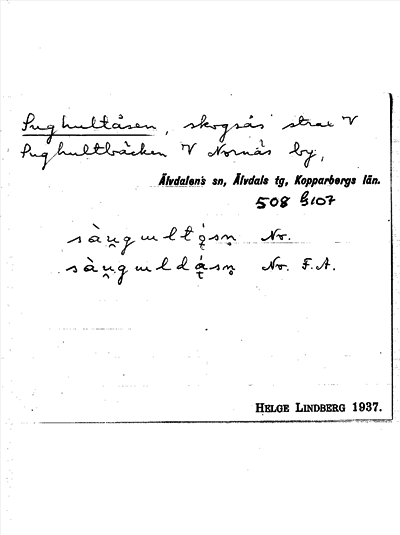 Sughultåsen, skogsås strax V
Sughultbäcken V Nornäs by,
Älvdalen's sn, Älvdals tg, Kopparbergs län.
508 G107
No.
No. F.A.
HELGE LINDBERG 1937.